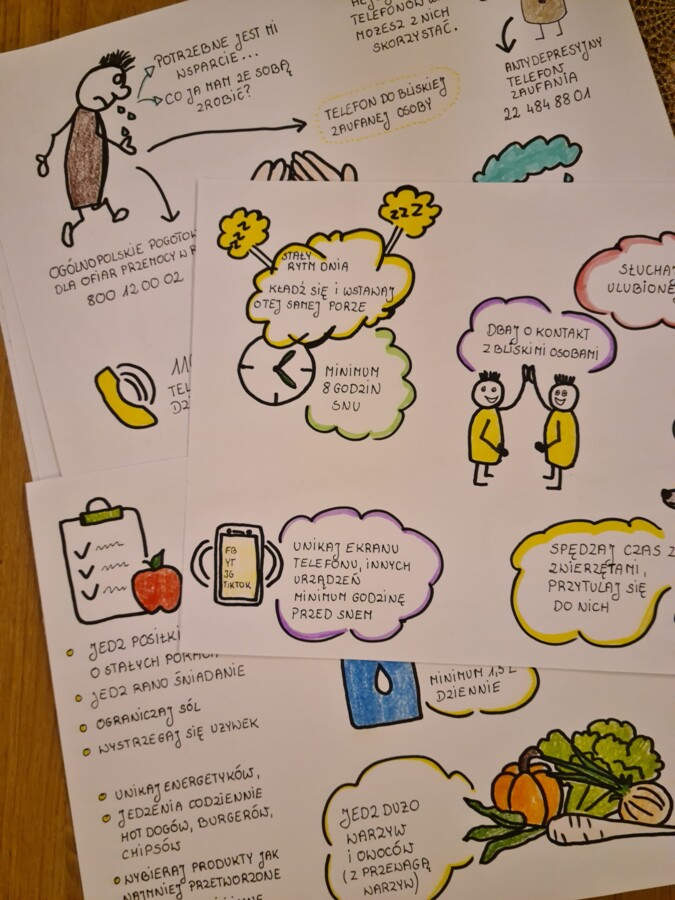 TELEFONÓW
MOŻESZ Z NICH
SKORZYSTAĆ.
POTRZEBNE JEST MI
WSPARCIE...
CO JA MAM ZE SOBĄ
ZROBIĆ?
TELEFON DO BLISKIEJ
ZAUFANEJ OSOBY
ANTYDEPRESYJNY
TELEFON
ZAUFANIA
22 484 88 01
OGÓLNOPOLSKIE
DLA OFIAR PRZEMOCY W
800 12 00 02
ZZZ
ZZZ
STAŁY
RYTM DNIA
KŁADŹ SIĘ I WSTAWAJ
O TEJ SAMEJ PORZE
MINIMUM
8 GODZIN
SNU
DBAJ O KONTAKT
Z BLISKIMI OSOBAMI
FB
YT
IG
TIKTOK
UNIKAJ EKRANU
TELEFONU, INNYCH
URZĄDZEŃ
MINIMUM GODZINĘ
PRZED SNEM
SPĘDZAJ CZAS Z
ZWIERZĘTAMI,
PRZYTULAJ SIĘ
DO NICH
JEDZ POSIŁKI
O STAŁYCH PORACH
JEDZ RANO ŚNIADANIE
OGRANICZAJ SÓL
WYSTRZEGAJ SIĘ UŻYWEK
UNIKAJ ENERGETYKÓW,
JEDZENIA CODZIENNIE
HOT DOGÓW, BURGERÓW,
CHIPSÓW
WYBIERAJ PRODUKTY JAK
NAJMNIEJ PRZETWORZONE
MINIMUM 1,5 L
DZIENNIE
JEDZ DUŻO
WARZYW
I OWOCÓW
(Z PRZEWAGĄ
WARZYW)